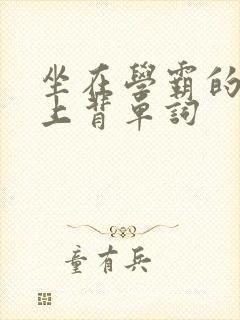 坐在學霸的
上背單詞
童有兵